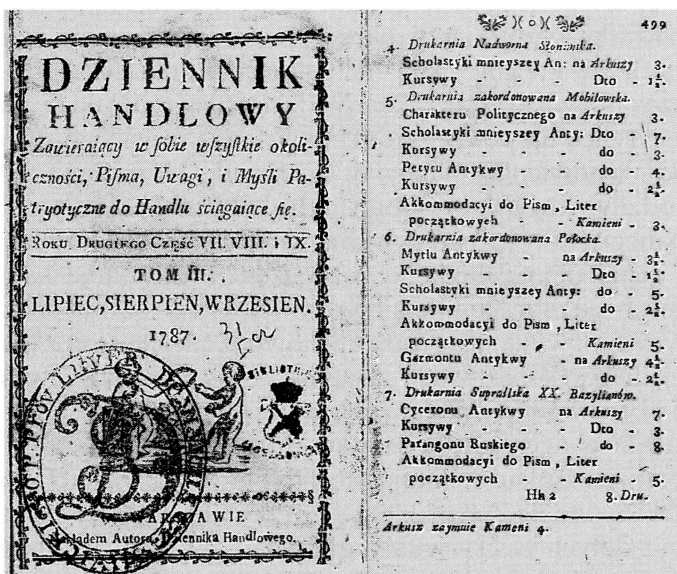 DZIENNIK
HANDLOWY
Zawieraiący w ſobie wſzyſtkie okoli-
czności, Piſma, Uwagi, i Myſli Pa-
tryotyczne do Handlu ściągaiące ſię.
ROKU DRUGIEGO CZĘŚĆ VII. VIII. i IX.
TOM III.
LIPIEC, SIERPIEN, WRZESIEN.
1787.
WARSZAWIE
Autora Dziennika Handlowego.
)( o )( 499
4. Drukarnia Nadworna Słonimska.
Scholastyki mnieyszey An: na Arkuszy 3.
Kursywy - - Dto - 1½.
5. Drukarnia zakordonowana Mohilowska.
Charakteru Politycznego na Arkuszy 3.
Scholastyki mnieyszey Anty: Dto - 7.
Kursywy - - - do - 3.
Petytu Antykwy - - do - 4.
Kursywy - - - do - 2½.
Akkommodacyi do Pism, Liter
początkowych - Kamieni - 3.
6. Drukarnia zakordonowana Połocka.
Mytlu Antykwy - na Arkuszy - 3½.
Kursywy - - - Dto - 1½.
Scholastyki mnieyszey Anty: do - 5.
Kursywy - - - do - 2½.
Akkommodacyi do Pism, Liter
początkowych - - Kamieni 5.
Garmontu Antykwy - na Arkuszy 4½.
Kursywy - - - do - 2½.
7. Drukarnia Supraslska XX. Bazylianów.
Cyceronu Antykwy na Arkuszy 7.
Kursywy - - - Dto - 3.
Parangonu Ruskiego - do - 8.
Akkommodacyi do Pism, Liter
początkowych - - Kamieni - 5.
Hh 2 8. Dru.
Arkusz zaymuie Kameni 4.